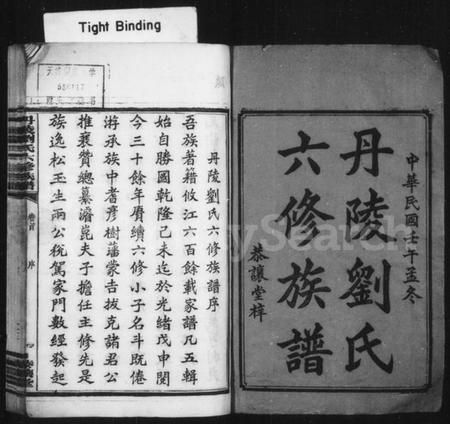 Tight Binding
中華民國壬午孟冬
丹陵劉氏
六修族譜
恭讓堂梓
丹陵劉氏六修族譜序
吾族著籍攸江六百餘載家譜凡五輯
始自勝國乾隆己未迄於光緒戊申閱
今三十餘年賡續六修小子名斗既倦
游承族中耆彥樹藩蒙吉拔克諸君公
推襄贊總纂濬崑夫子擔任主修先是
族逸松玉生兩公稅駕家門數經發起
丹陵劉氏六修族譜
卷首
序